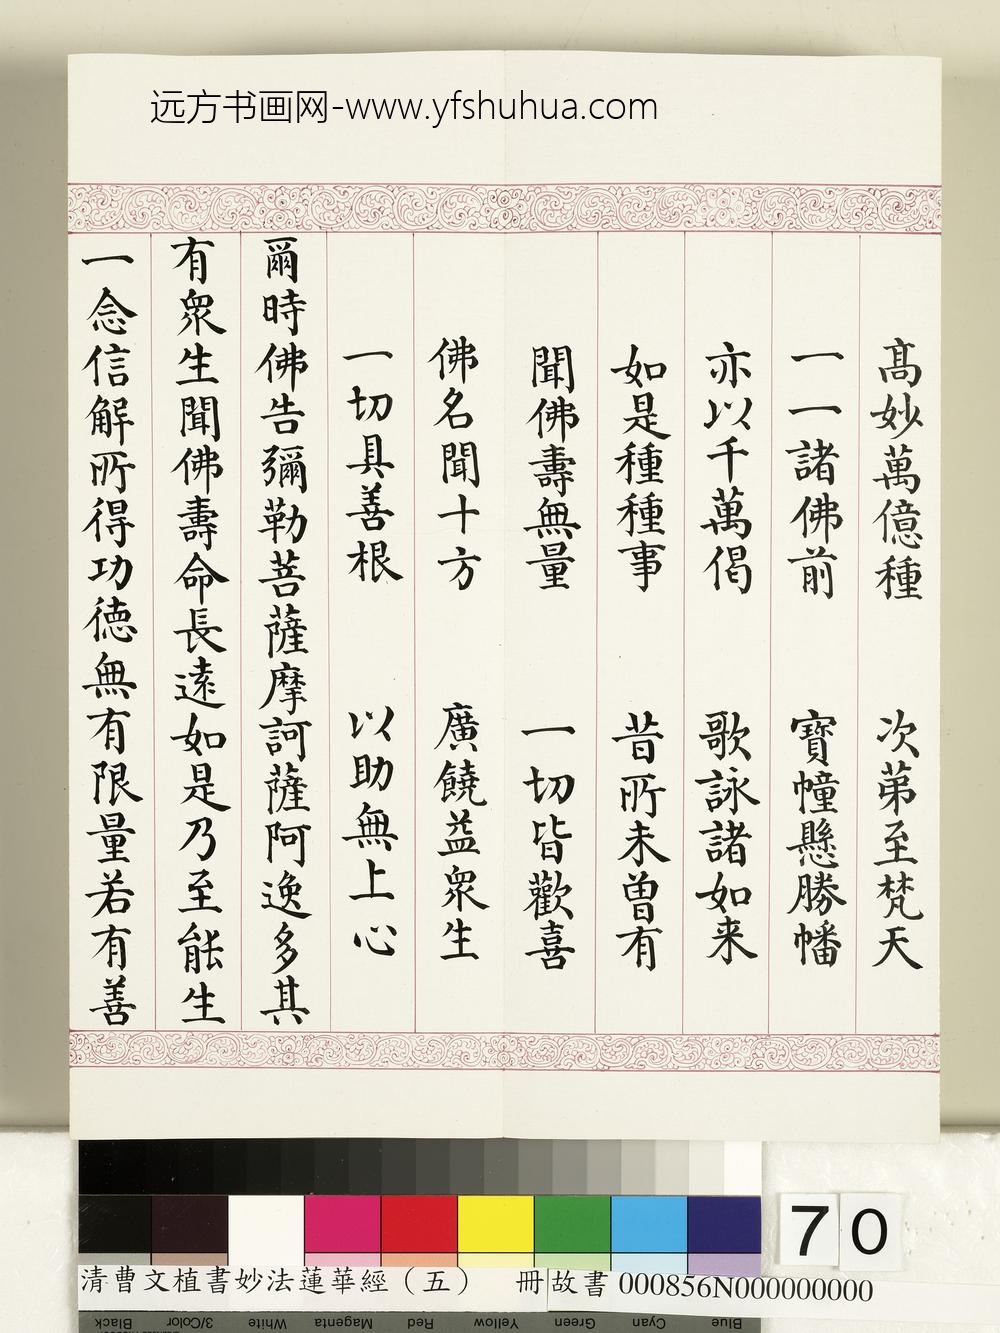 远方书画网-www.yfshuhua.com
高妙萬億種　次第至梵天
一一諸佛前　寶幢懸勝幡
亦以千萬偈　歌詠諸如来
如是種種事　昔所未曾有
聞佛壽無量　一切皆歡喜
佛名聞十方　廣饒益衆生
一切具善根　以助無上心
爾時佛告彌勒菩薩摩訶薩阿逸多其
有衆生聞佛壽命長遠如是乃至能生
一念信解所得功德無有限量若有善
70
清曹文植書妙法蓮華經（五）　冊 故書 000856N000000000
Black 3/Color White Magenta Red Yellow Green Cyan Blue